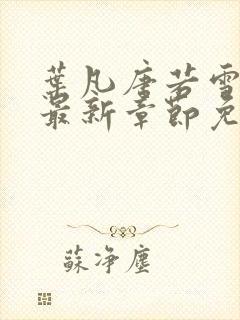 葉凡唐若雪
最新章節免
蘇淨塵